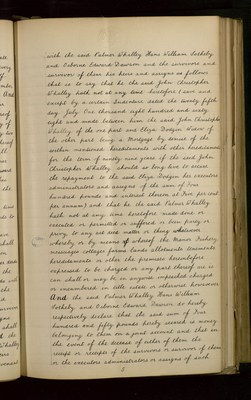 with the said Palmer Whalley Hans William Sotheby
and Osborne Edward Dawson and the survivors and
survivor of them his heirs and assigns as follows
that is to say that he the said Christopher
Whalley hath not at any time heretofore (save and
except by a certain Indenture dated the twenty fifth
day July One thousand eight hundred and sixty
eight and made between him the said John Christopher
Whalley of the one part and Eliza Dodgin Widow of
the other part being a Mortgage by demise of the
within mentioned hereditaments with other hereditaments
for the term of ninety nine years if the said John
Christopher Whalley should so long live to secure
the repayment to the said Eliza Dodgin her executors
administrators and assigns of the sum of Five
hundred pounds and interest thereon at Five per cent
per annum) and that he the said Palmer Whalley
hath not at any time heretofore made done or
executed or permitted or suffered or been party or
privy to any act deed matter or thing whatsoever
whereby or by means whereof the Manor Rectory
messuages cottages farms lands allotments tenements
hereditaments or other the premises hereinbefore
expressed to be charged or any part thereof are is
can shall or may be in anywise impeached charged
or incumbered in title estate or otherwise howsoever
And the said Palmer Whalley Hans William
Sotheby and Osborne Edward Dawson do hereby
respectively declare that the said sum of Five
hundred and fifty pounds hereby secured is money
belonging to them on a joint account and that in
the event of the decease of either of them the
receipt or receipts of the survivors or survivor of them
or the executors administrators or assigns of such